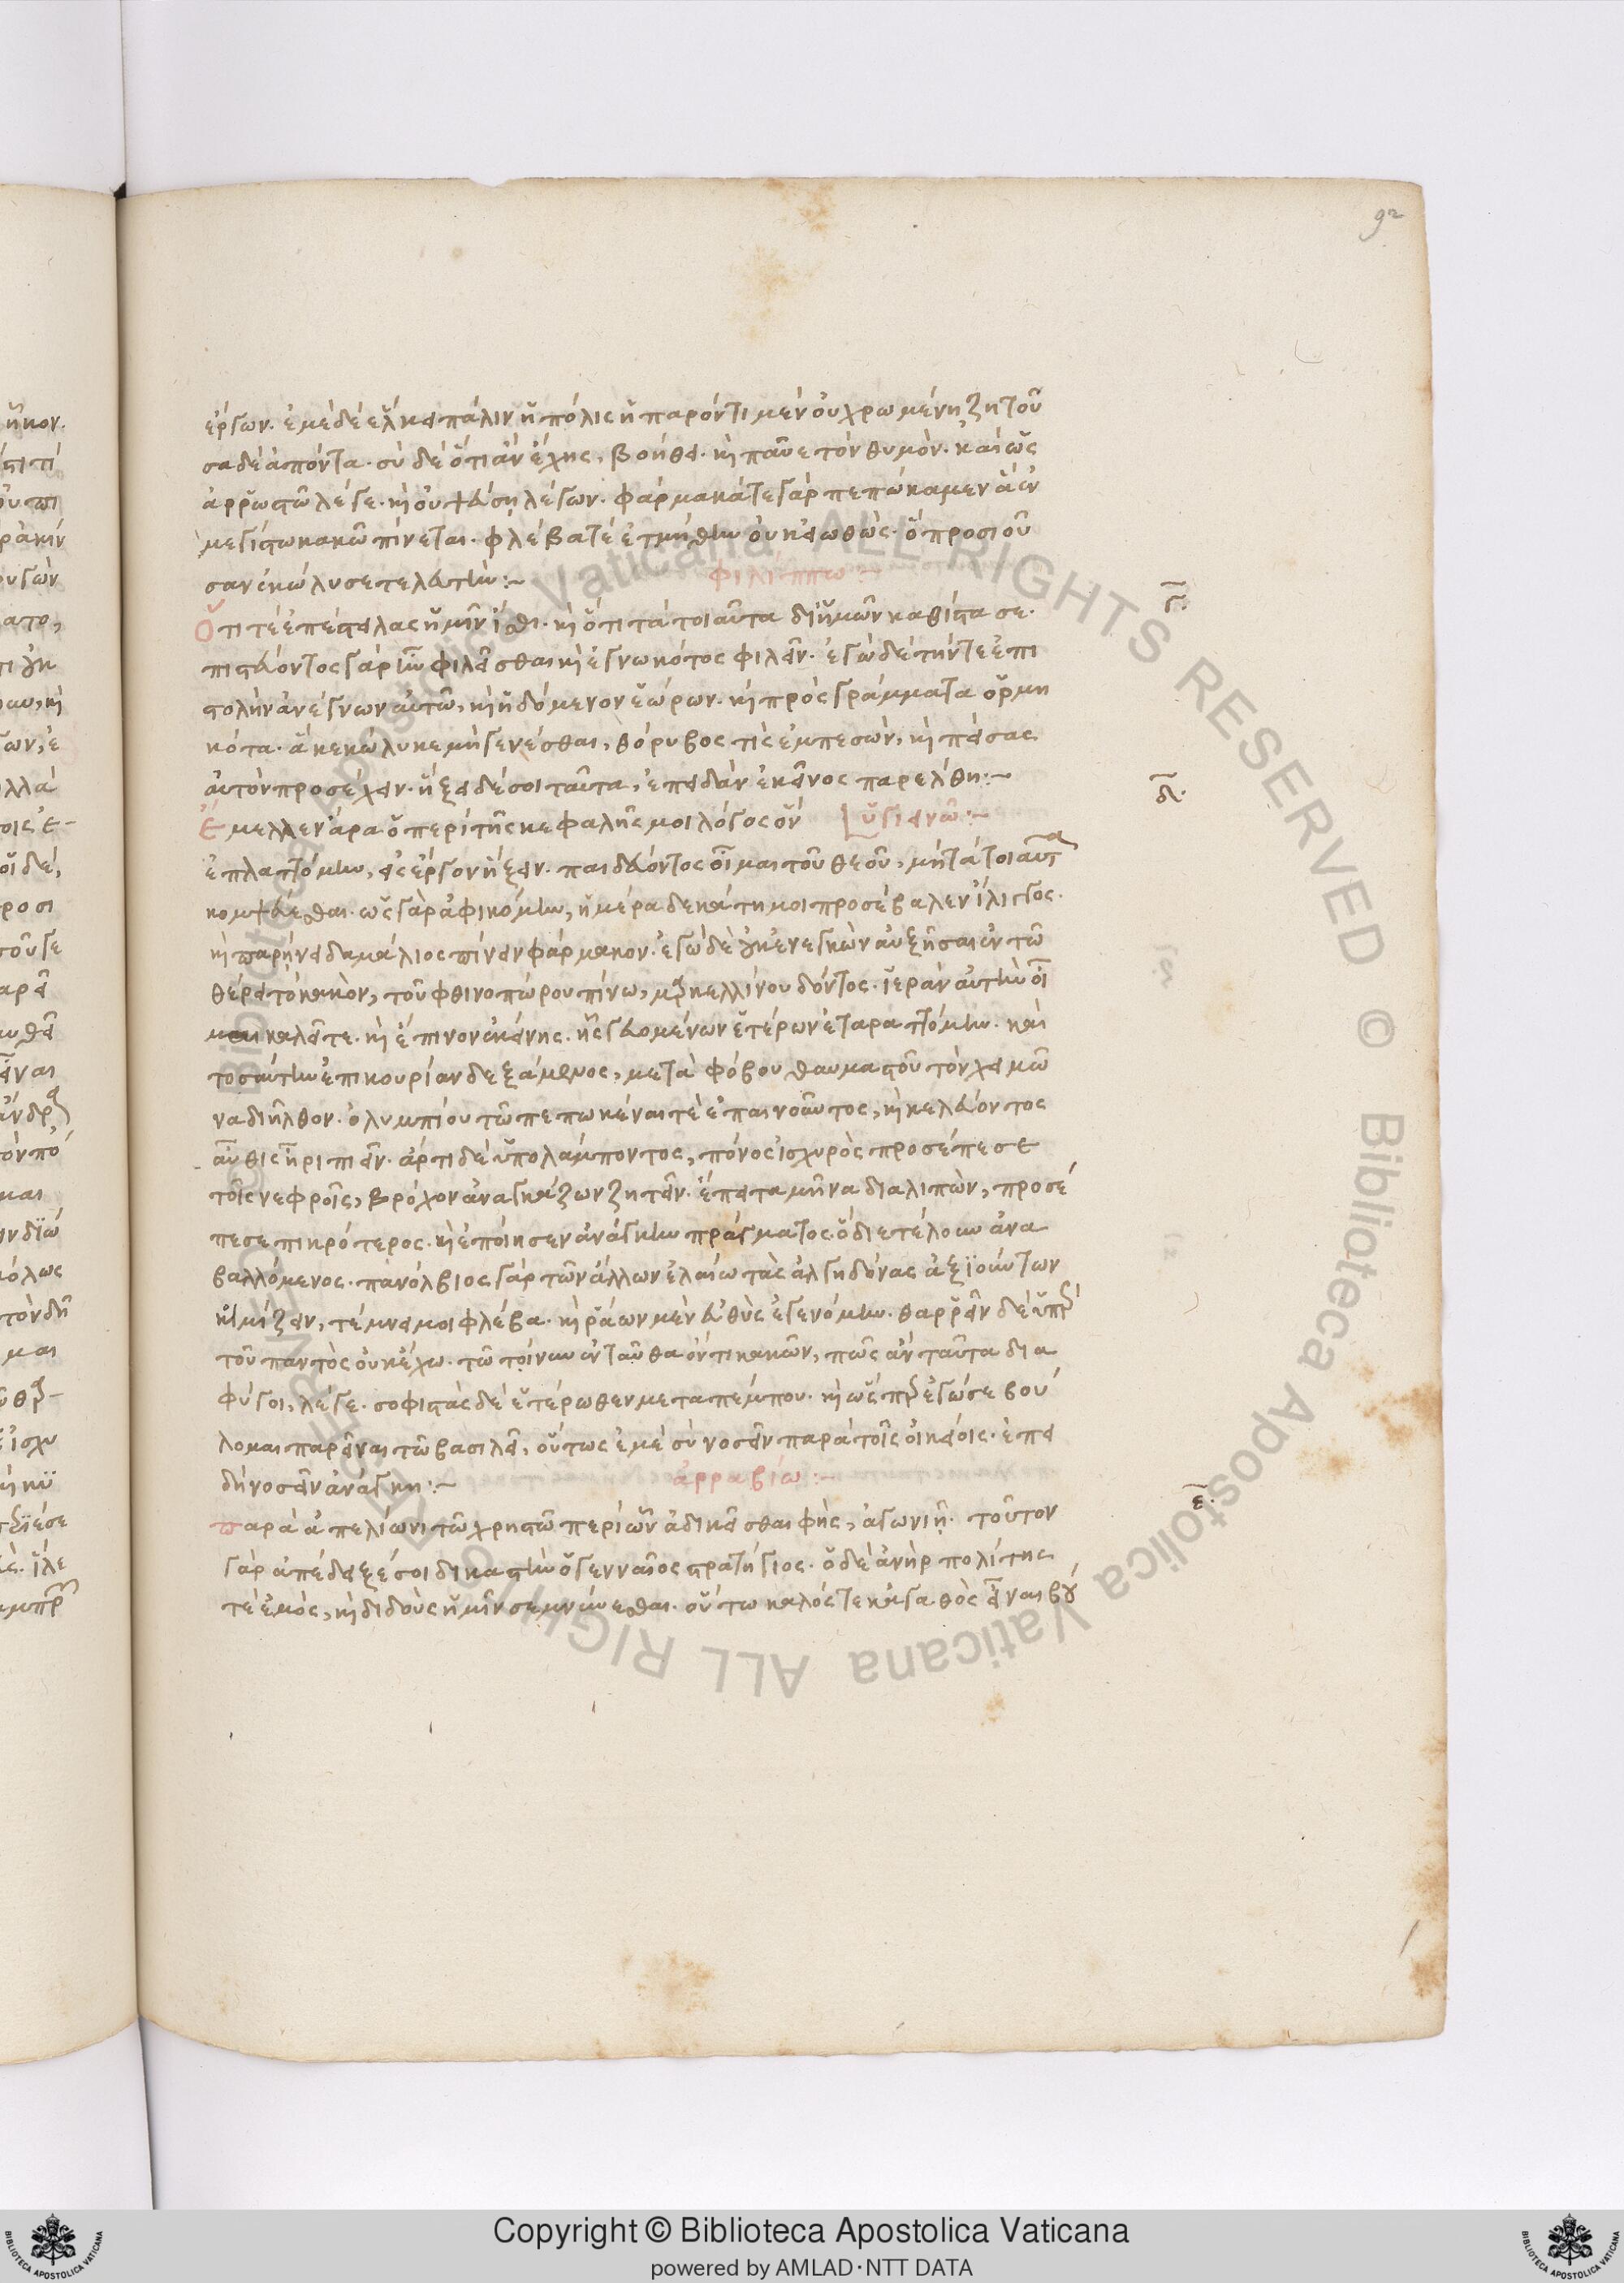 92
ἔργων. ἐμὲ δὲ εἷλκε πάλιν ἡ πόλις ἡ παρόντι μὲν οὐ χρωμένη ζητοῦ
σα δὲ ἀπόντα. σὺ δὲ ὅτι ἂν ἔχῃς, βοήθει. καὶ παῦε τὸν θυμόν. καὶ ὡς
ἀρρωστῶ λέγε. καὶ οὐ ψεύσῃ λέγων. φάρμακά τε γὰρ πεπώκαμεν ἃ ἐν
μεγίστω κακῶ πίνεται. φλέβα τέ ἐτμήθην οὐκ εἰωθώς. ὃ προσιοῦ
σαν ἐκώλυσε τελευτήν:~
φιλίππω:~
γ.
Ὅτι τέ ἐπέστειλας ἡμῖν ἴσθι. καὶ ὅτι τὰ τοιαῦτα δι' ἡμῶν καθίστασε.
πιστεύοντος γὰρ ἦν φιλεῖσθαι καὶ ἐγνωκότος φιλεῖν. ἐγὼ δὲ τήν τε ἐπι
στολὴν ἀνέγνων αὐτῶ, καὶ ἡδόμενον ἑώρων. καὶ πρὸς γράμματα ὁρμη
κότα. ἃ κεκώλυκε μὴ γενέσθαι, θόρυβος τίς ἐμπεσών, καὶ πείσας
αὐτὸν προσέχειν. ἥξει δέ σοι ταῦτα, ἐπειδὰν ἐκεῖνος παρέλθη:~
δ.
Ἔμελλεν ἄρα ὁ περὶ τῆς κεφαλῆς μοι λόγος ὃν
ὑγιεινῶ:~
ἐπλαττόμην, εἰς ἔργον ἥξειν. παιδεύοντος οἶμαι τοῦ θεοῦ, μὴ τὰ τοιαῦτα
κομψεύεσθαι. ὡς γὰρ ἀφικόμην, ἡμέρα δεκάτη μοι προσέβαλεν ἴλιγγος.
καὶ παρήνει δαμάλιος πίνειν φάρμακον. ἐγὼ δὲ ἐξενεγκὼν αὐξῆσαι ἐν τῶ
θέρει τὸ κακόν, τοῦ φθινοπώρου πίνω, μαρκελλίνου δόντος. ἱερὰν αὐτὴν οἶ
μαι καλεῖτε. καὶ ἔπινον ἐκείνης. ἧς γευομένων ἑτέρων ἐταραττόμην. καὶ
τοσαύτην ἐπικουρίαν δεξάμενος, μετὰ φόβου θαυμαστοῦ τὸν χειμῶ
να διῆλθον. ὀλυμπίου τῶ πεπωκέναι τὲ ἐπαινοῦντος, καὶ κελεύοντος
αὖθις ἦρι πιεῖν. ἄρτι δὲ ὑπολάμποντος, πόνος ἰσχυρὸς προσέπεσε
τοῖς νεφροῖς, βρόχον ἀναγκάζων ζητεῖν. ἔπειτα μῆνα διαλιπών, προσέ
πεσε πικρότερος. καὶ ἐποίησεν ἀνάγκην πράγματος ὃ διετέλουν ἀνα
βαλλόμενος. πανόλβιος γὰρ τῶν ἄλλων ἐλαίω τὰς ἀλγηδόνας ἀξιούντων
κοιμίζειν, τέμνει μοι φλέβα. καὶ ῥάων μὲν εὐθὺς ἐγενόμην. θαρρεῖν δὲ ὑπὲρ
τοῦ παντὸς οὐκ ἔχω. τῶ τοίνυν ἐνταῦθα ὄντι κακῶν, πῶς ἂν ταῦτα δια
φύγοι, λέγε. σοφιστὰς δὲ ἑτέρωθεν μεταπέμπου. καὶ ὥσπερ ἐγὼ σὲ βού
λομαι παρεῖναι τῶ βασιλεῖ, οὕτως ἐμὲ σὺ νοσεῖν παρὰ τοῖς οἰκείοις. ἐπει
δὴ νοσεῖν ἀνάγκη:~
ἀρραβίω:~
ε.
παρὰ ἀπελίωνι τῶ χρηστῶ περὶ ὧν ἀδικεῖσθαι φῆς, ἀγωνιῇ. τοῦτον
γὰρ ἀπέδειξέ σοι δικαστὴν ὁ γενναῖος στρατήγιος. ὁ δὲ ἀνὴρ πολίτης
τὲ ἐμὸς, καὶ διδοὺς ἡμῖν σεμνύνεσθαι. οὕτω καλός τε κἀγαθὸς εἶναι βού
Copyright © Biblioteca Apostolica Vaticana
powered by AMLAD·NTT DATA